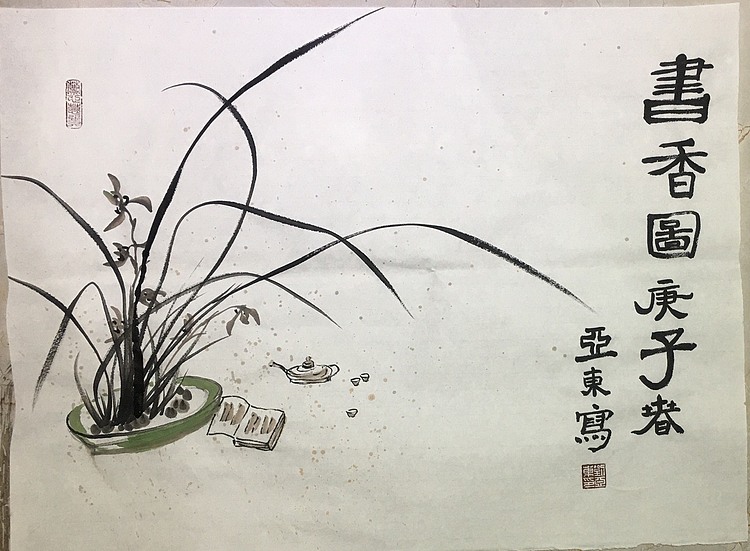 書香圖庚子春
亞東寫